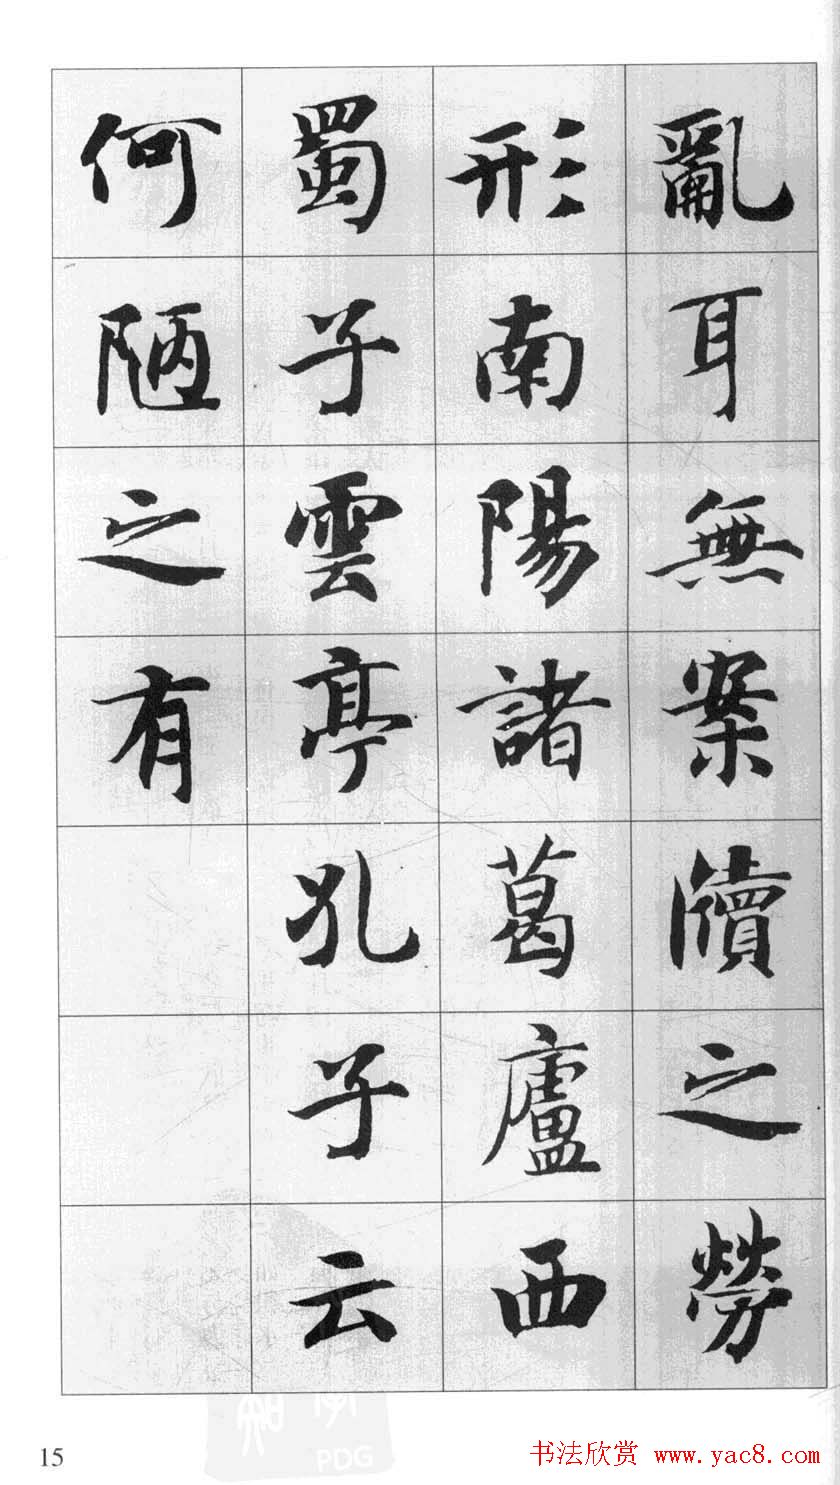 亂耳無案牘之勞
形南陽諸葛廬西
蜀子雲亭孔子云
何陋之有
15
PDG
书法欣赏 www.yac8.com